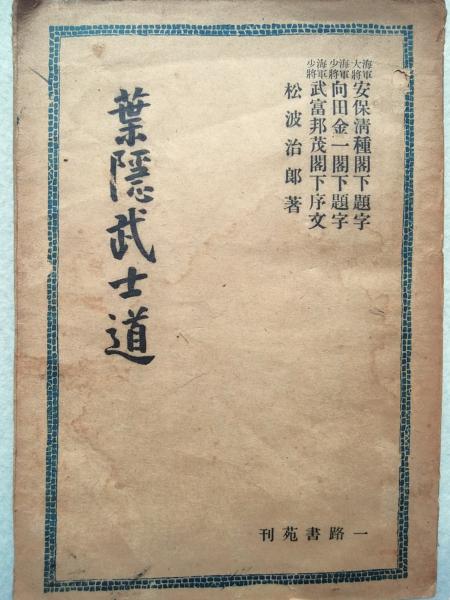 海軍大將安保淸種閣下題字
海軍少將向田金一閣下題字
海軍少將武富邦茂閣下序文
松波治郎著
葉隱武士道
一路書苑刊